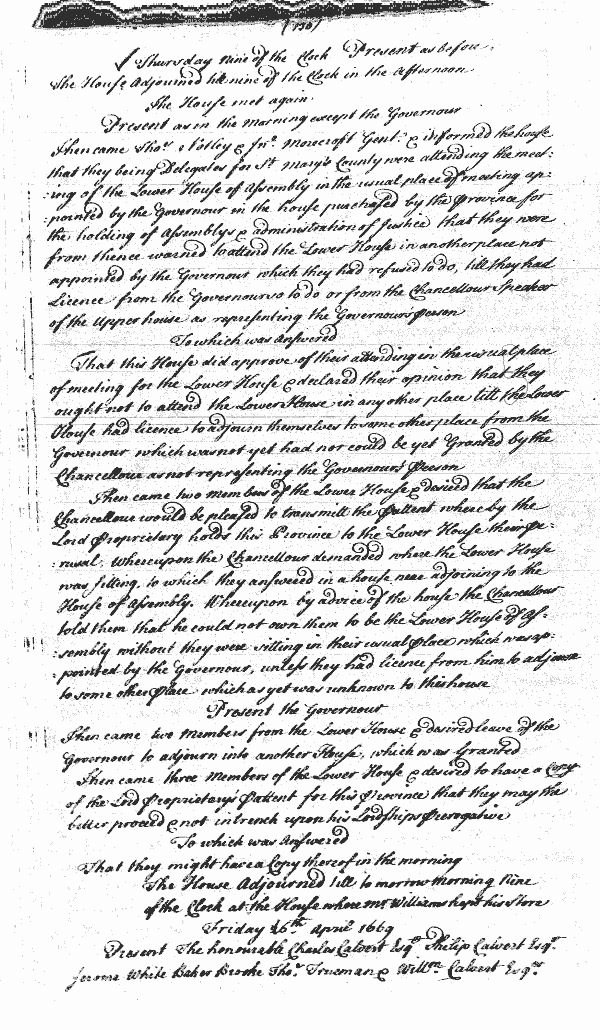 (136)
Thursday nine of the Clock Present as before.
The House Adjourned till nine of the Clock in the Afternoon
The House met again.
Present as in the Morning except the Governour
Then came Thos. Notley & Jno. Morecroft Gent. & informed the house
that they being Delegates for St. Mary's County were attending the meet:
:ing of the Lower House of Assembly in the usual place of meeting ap:
:pointed by the Governour in the house purchased by the Province for
the holding of Assemblys & administration of Justice that they were
from thence warned to attend the Lower House in another place not
appointed by the Governour which they had refused to do, till they had
Licence from the Governour so to do or from the Chancellour Speaker
of the Upper house as representing the Governours Person
To which was answered
That this House did approve of their attending in the usual place
of meeting for the Lower House & declared their opinion that they
ought not to attend the Lower House in any other place till the Lower
House had licence to adjourn themselves to some other place from the
Governour which was not yet had nor could be yet Granted by the
Chancellour as not representing the Governours Person
Then came two members of the Lower House & desired that the
Chancellour would be pleased to transmit the Pattent where by the
Lord Proprietary holds this Province to the Lower House their pe:
:rusal, Whereupon the Chancellour demanded where the Lower House
was sitting, to which they answered in a house near adjoining to the
House of Assembly. Whereupon by advice of the house the Chancellour
told them that he could not own them to be the Lower House of As:
:sembly without they were sitting in their usual Place which was ap:
:pointed by the Governour, unless they had licence from him to adjourn
to some other Place which as yet was unknown to this house
Present the Governour
Then came two Members from the Lower House & desired leave of the
Governour to adjourn into another House, which was Granted
Then came three Members of the Lower House & desired to have a Copy
of the Lord Proprietary's Pattent for this Province that they may the
better proceed & not intrench upon his Lordships Prerogative
To which was Answered
That they might have a Copy thereof in the morning
The House Adjourned till to morrow morning Nine
of the Clock at the House where Mr. Williams kept his Store
Friday 16th April 1669
Present The honourable Charles Calvert Esqr. Philip Calvert Esqr.
Jerome White Baker Brooke Thos. Trueman & Willm. Calvert Esqrs.